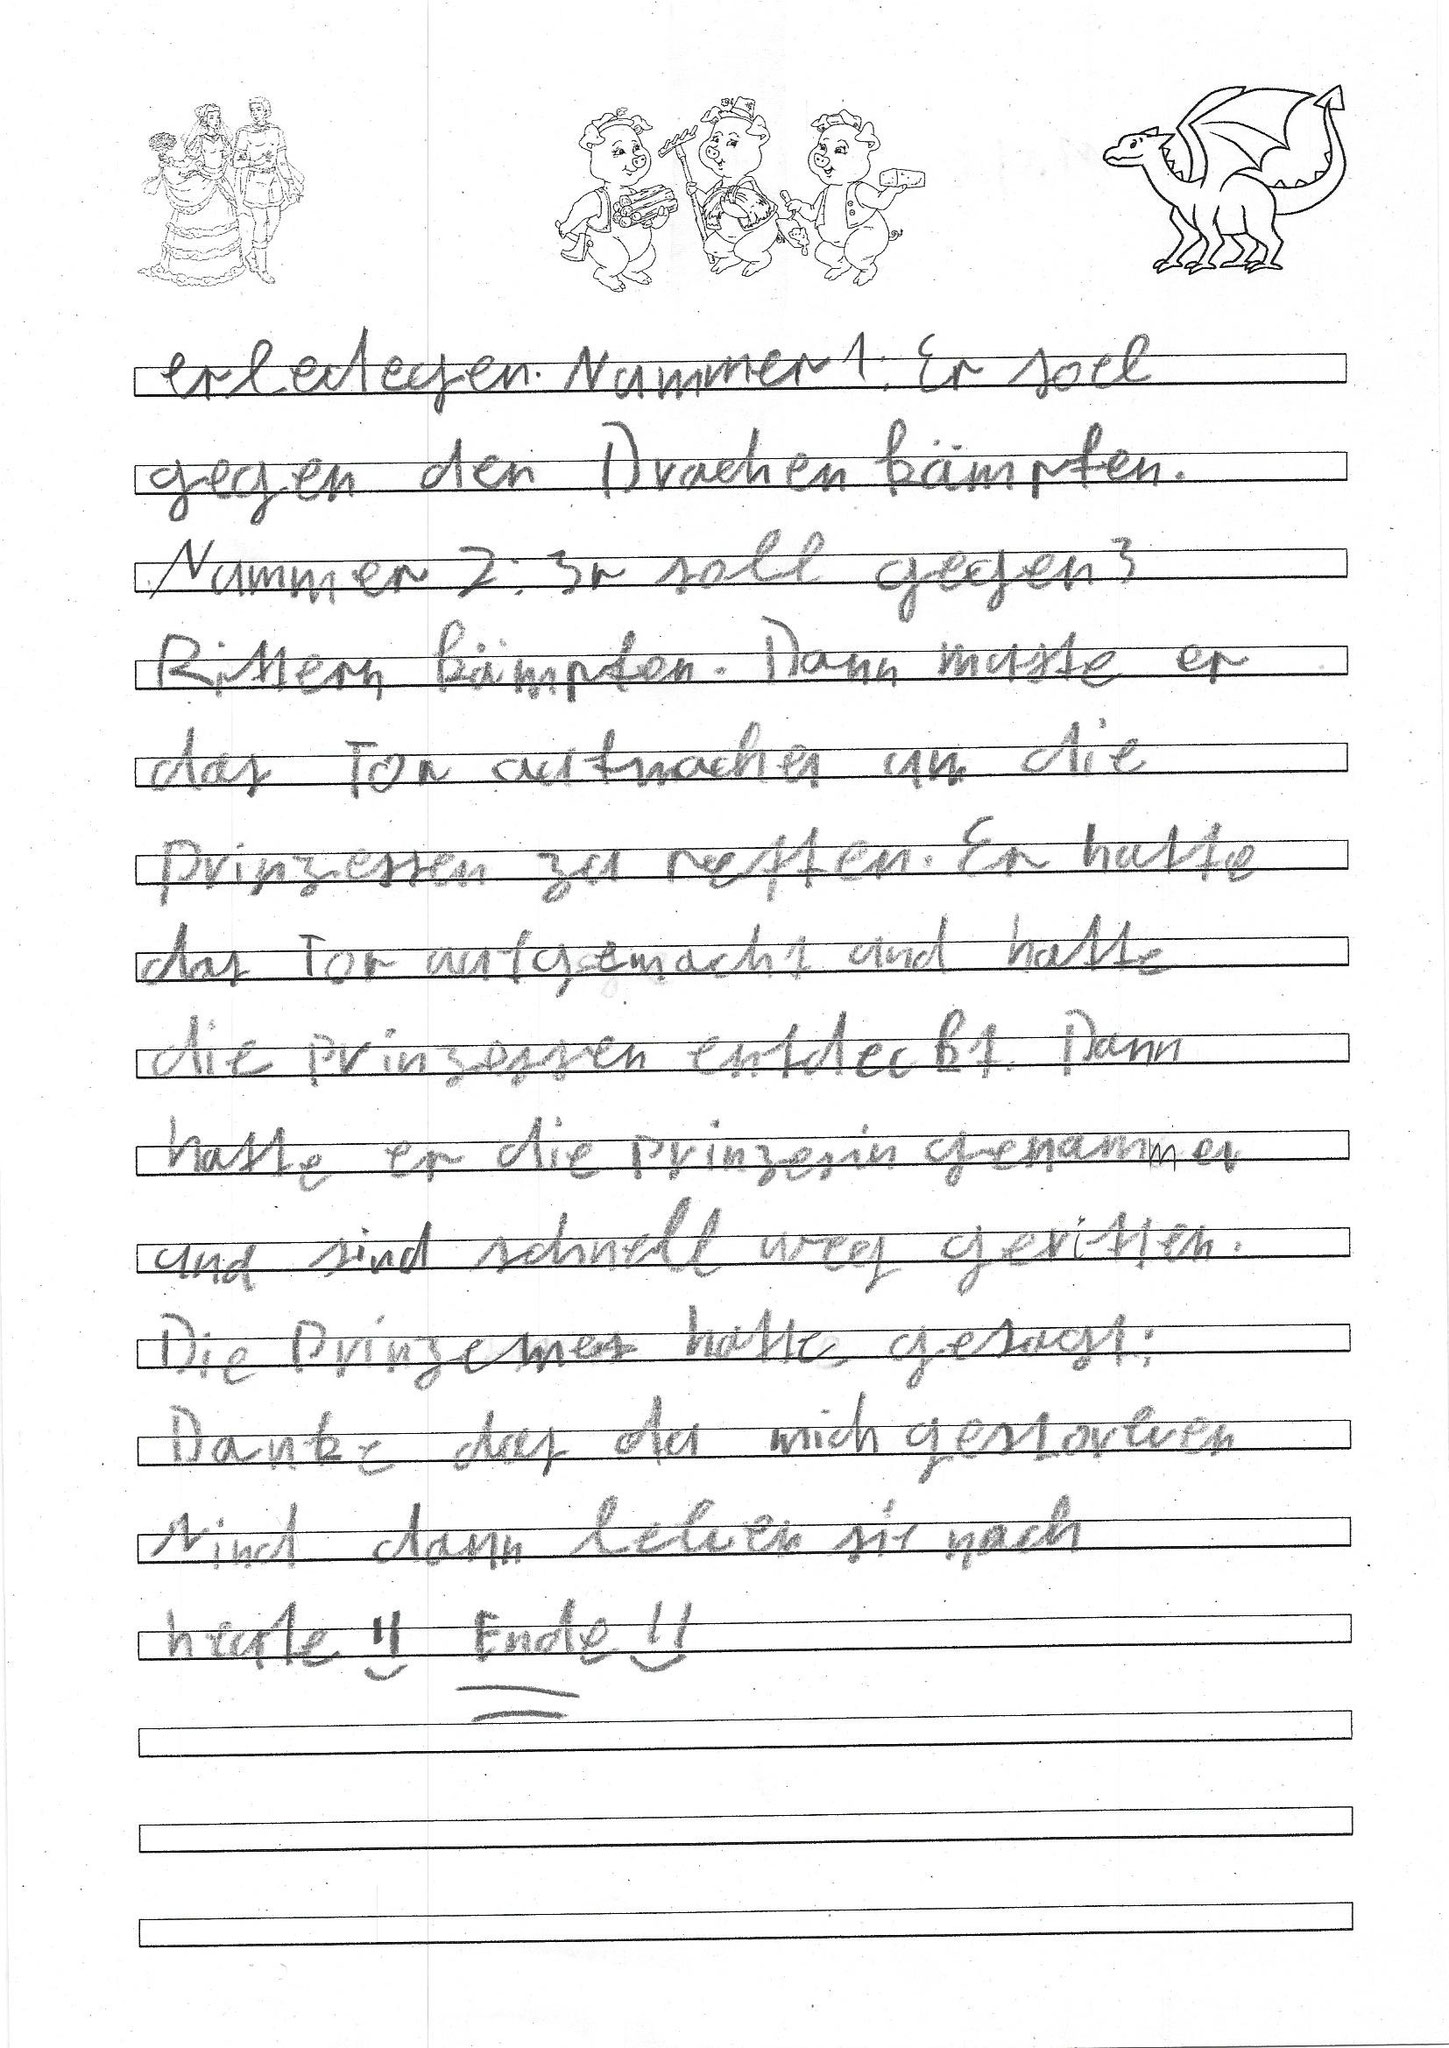 erledegen. Nummer 1: Er soll
gegen den Drachen kämpfen.
Nummer 2: Er soll gegen 3
Rittern kämpfen. Dann musste er
das Tor aufmachen um die
Prinzessen zu retten. Er hatte
das Tor aufgemacht und hatte
die Prinzessen entdeckt. Dann
hatte er die Prinzesin genammen
und sind schnell weg geritten.
Die hatte gesagt:
Danke das du mich gestorben
sind dann leben sie noch
heute!! Ende!!